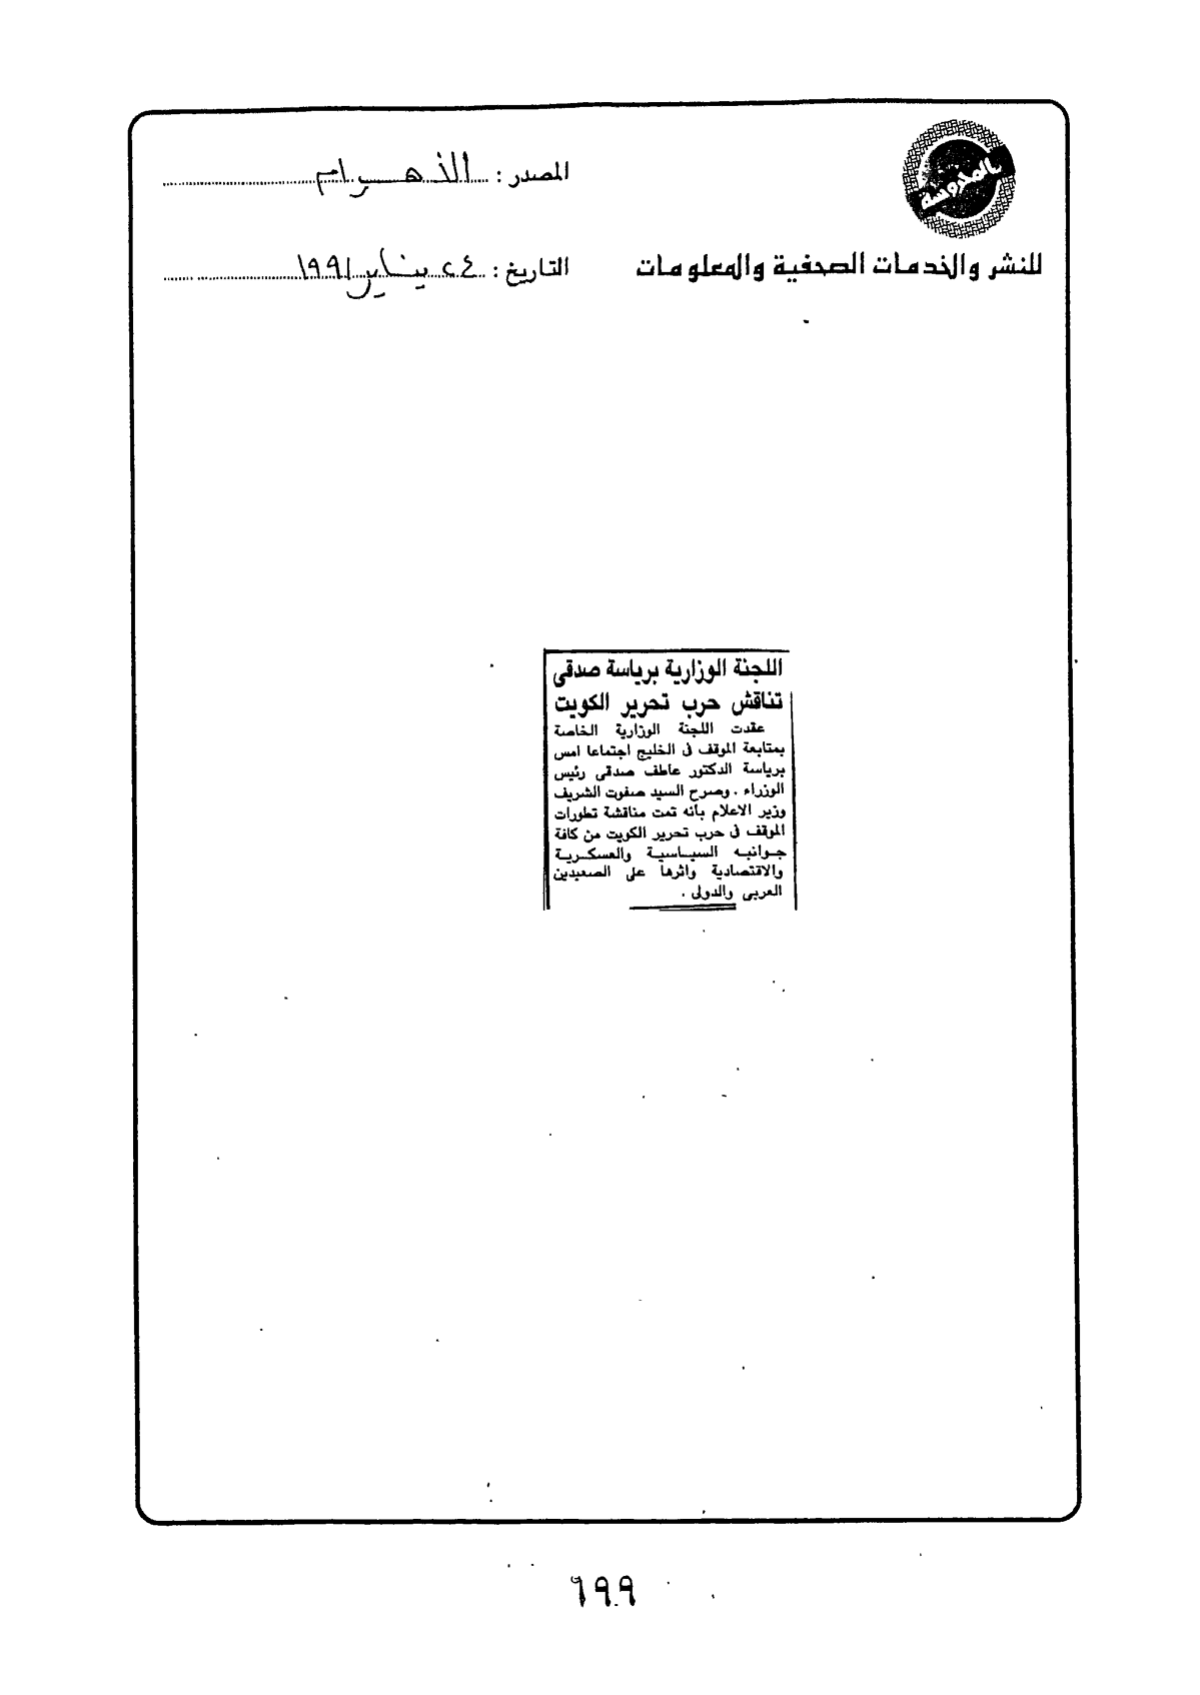 المحروسة
للنشر والخدمات الصحفية والمعلومات
المصدر : الأهرام
التاريخ : ٢٤ يناير ١٩٩١
اللجنة الوزارية برياسة صدقى
تناقش حرب تحرير الكويت
عقدت اللجنة الوزارية الخاصة
بمتابعة الموقف فى الخليج اجتماعا امس
برياسة الدكتور عاطف صدقى رئيس
الوزراء . وصرح السيد صفوت الشريف
وزير الاعلام بأنه تمت مناقشة تطورات
الموقف فى حرب تحرير الكويت من كافة
جوانبه السياسية والعسكرية
والاقتصادية واثرها على الصعيدين
العربى والدولى .
٦٩٩